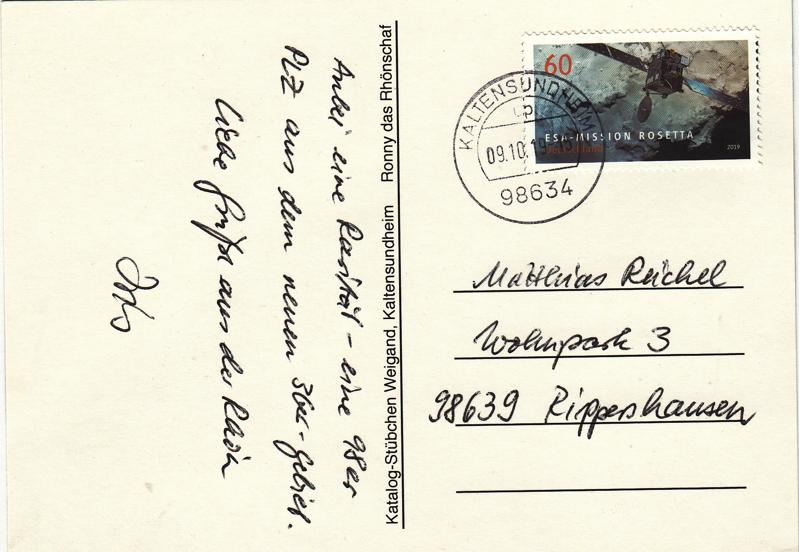 Anbei eine Rarität – eine 98er
PLZ aus dem neuen 36er-Gebiet.
Liebe Grüße aus der Rhön
Katalog-Stübchen Weigand, Kaltensundheim Ronny das Rhönschaf
60
ESA-MISSION ROSETTA
Deutschland
2019
KALTENSUNDHEIM
09.10.19
98634
Matthias Reichel
Wohnpark 3
98639 Rippershausen